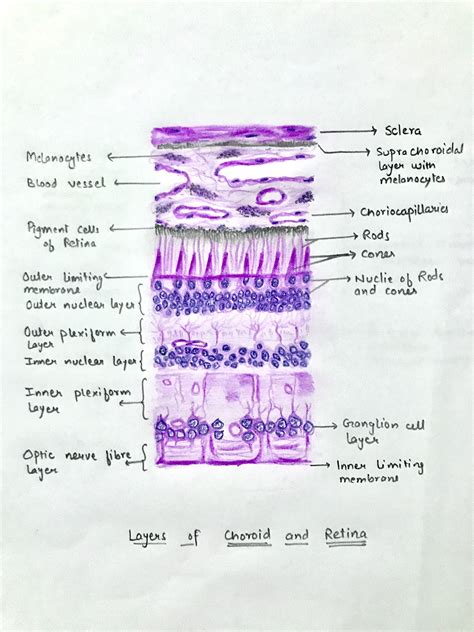 Melanocytes
Blood vessel
Pigment cells
of Retina
Outer limiting
membrane
Outer nuclear layer
Outer plexiform
layer
Inner nuclear layer
Inner plexiform
layer
Optic nerve fibre
layer
Sclera
Suprachoroidal
layer with
melanocytes
Choriocapillaries
Rods
Cones
Nuclie of Rods
and cones
Ganglion cell
layer
Inner limiting
membrane
Layers of Choroid and Retina